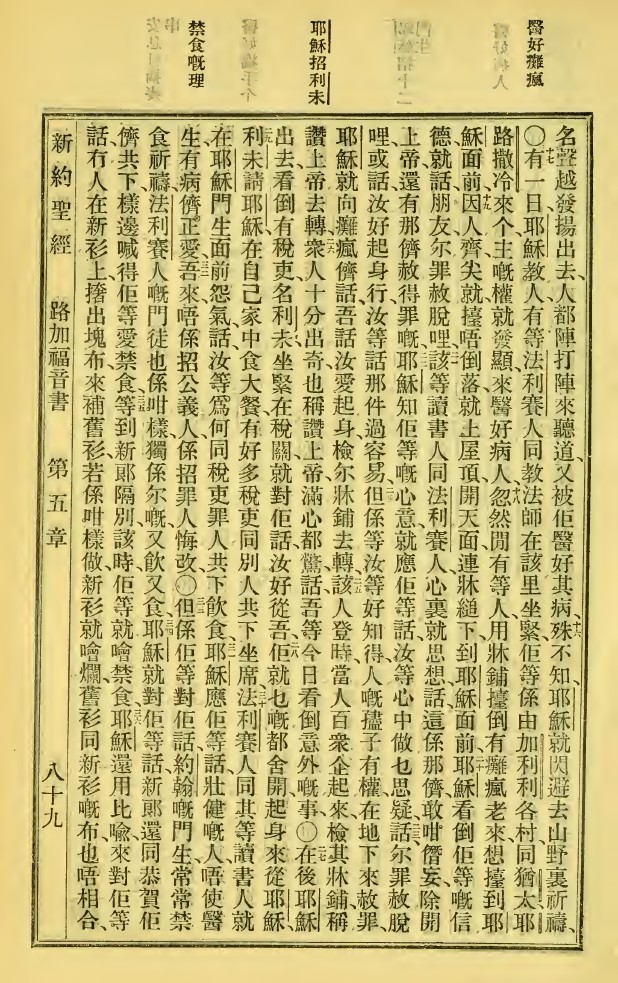 醫好癱瘋
耶穌招利未
禁食嘅理
名聲越發揚出去、人都陣打陣來聽道、又被佢醫好其病、十六殊不知耶穌就閃避去山野裏祈禱、
十七〇有一日耶穌教人有等法利賽人同教法師在該里坐緊佢等係由加利利各村同猶太耶
路撒冷來个主嘅權就發顯來醫好病人、十八忽然閒有等人用牀鋪擡倒有癱瘋老來想擡到耶
穌面前、十九因人齊尖就擡唔倒落就上屋頂開天面連牀縋下到耶穌面前、二十耶穌看倒佢等嘅信
德就話朋友尔罪赦脫哩、二一該等讀書人同法利賽人心裏就思想話這係那儕敢咁僭妄除開
上帝還有那儕赦得罪嘅、二二耶穌知佢等嘅心意就應佢等話汝等心中做乜思疑、二三話尔罪赦脫
哩或話汝好起身行汝等話那件過容易、二四但係等汝等好知得人嘅㜽子有權在地下來赦罪、
耶穌就向癱瘋儕話吾話汝愛起身檢尔牀鋪去轉、二五該人登時當人百衆企起來檢其牀鋪稱
讚上帝去轉、二六衆人十分出奇也稱讚上帝滿心都驚話吾等今日看倒意外嘅事、〇二七在後耶穌
出去看倒有稅吏名利未坐緊在稅關就對佢話汝好從吾、二八佢就乜嘅都舍開起身來從耶穌、
二九利未請耶穌在自己家中食大餐有好多稅吏同別人共下坐席、三十法利賽人同其等讀書人就
在耶穌門生面前怨氣話汝等爲何同稅吏罪人共下飲食、三一耶穌應佢等話壯健嘅人唔使醫
生有病儕正愛、三二吾來唔係招公義人係招罪人悔改、〇三三但係佢等對佢話約翰嘅門生常常禁
食祈禱法利賽人嘅門徒也係咁樣獨係尔嘅又飲又食、三四耶穌就對佢等話新郞還同恭賀佢
儕共下樣邊喊得佢等愛禁食、三五等到新郞隔別該時佢等就噲禁食、三六耶穌還用比喩來對佢等
話冇人在新衫上撦出塊布來補舊衫若係咁樣做新衫就噲爛舊衫同新衫嘅布也唔相合、
新約聖經 路加福音書 第五章 八十九